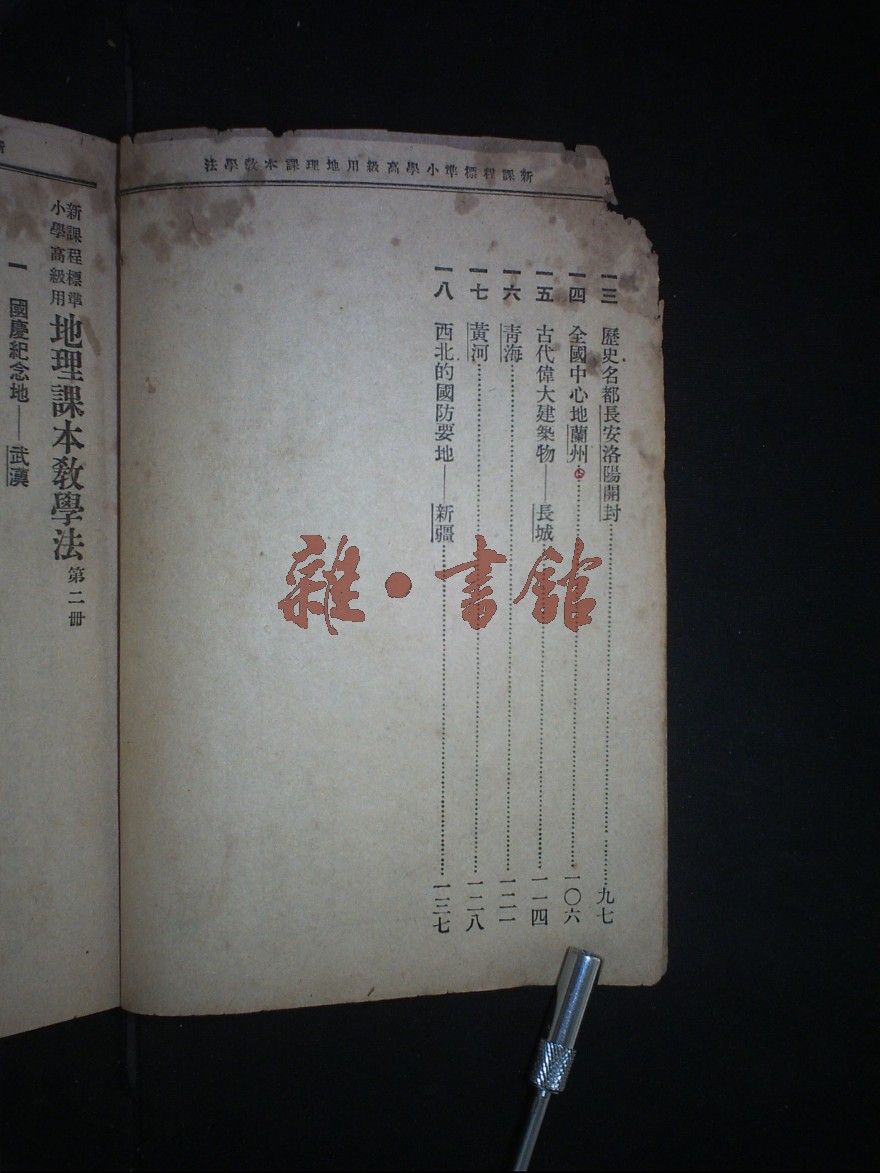 新課程標準小學高級用地理課本教學法
一三 歷史名都長安洛陽開封……九七
一四 全國中心地蘭州……一〇六
一五 古代偉大建築物——長城……一一四
一六 青海……一二一
一七 黃河……一二八
一八 西北的國防要地——新疆……一三七
新課程標準
小學高級用
地理課本教學法 第二冊
一 國慶紀念地——武漢
雜·書館